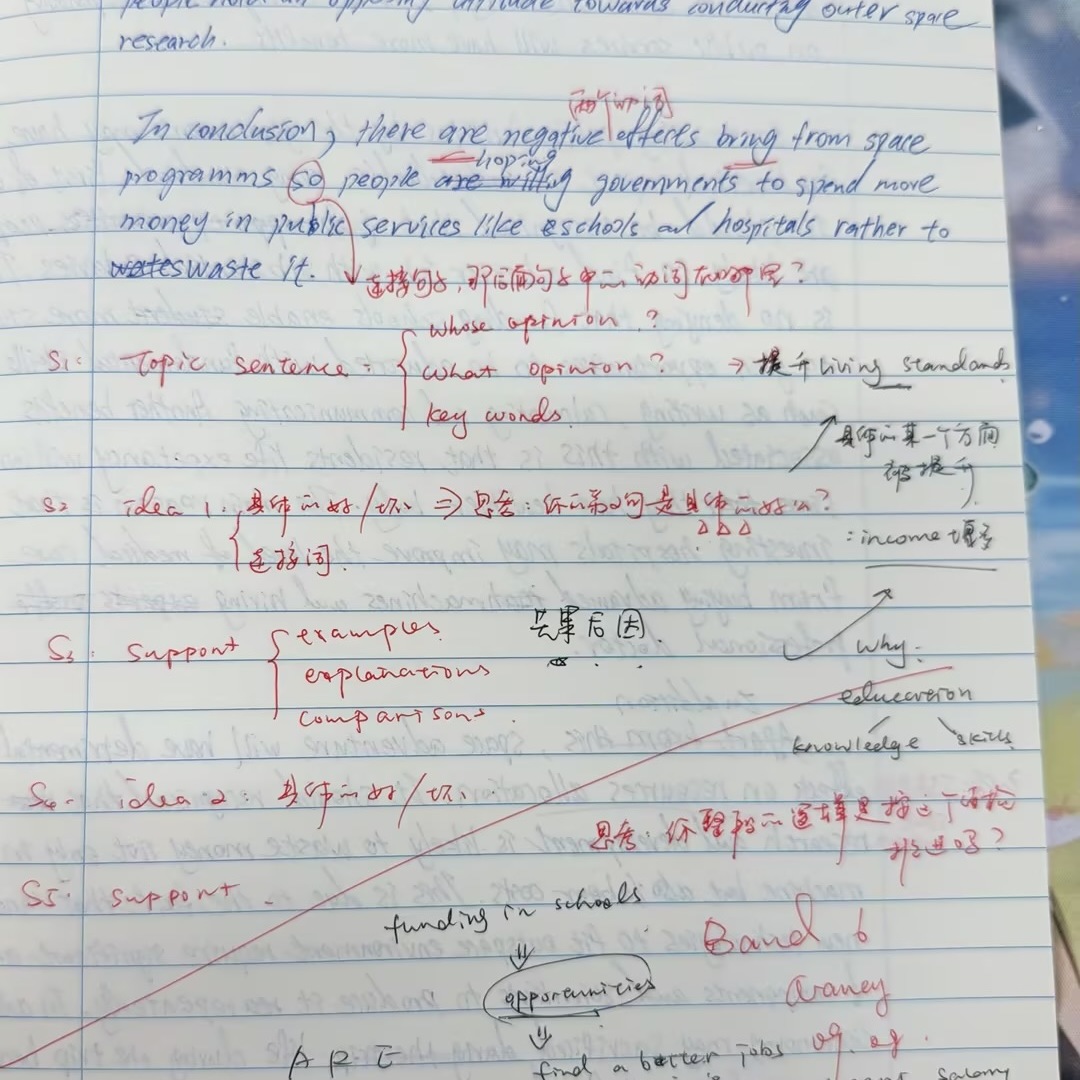 people an opposing attitude towards conducting outer space
research.
两个动词
In conclusion, there are negative effects bring from space
hoping
programms so people are willing governments to spend more
money in public services like schools and hospitals rather to
wates waste it.
连接句子，那后面句子中的动词在哪里？
S1: Topic sentence:
whose opinion?
what opinion?
key words.
→ 提升living standards
具体的某一个方面
被提升
: income 增多
S2 idea 1: 具体的好/坏. ⇒ 思考：你的第2句是具体的好么？
连接词.
S3: support
examples.
explanations
comparisons.
共果后因.
why:
education
knowledge skills
S4. idea 2: 具体的好/坏.
思考：你理解的逻辑是按这个
推进吗？
S5: support.
funding in schools
opportunities
find a better jobs
salary
A R E
Band 6
09.08.